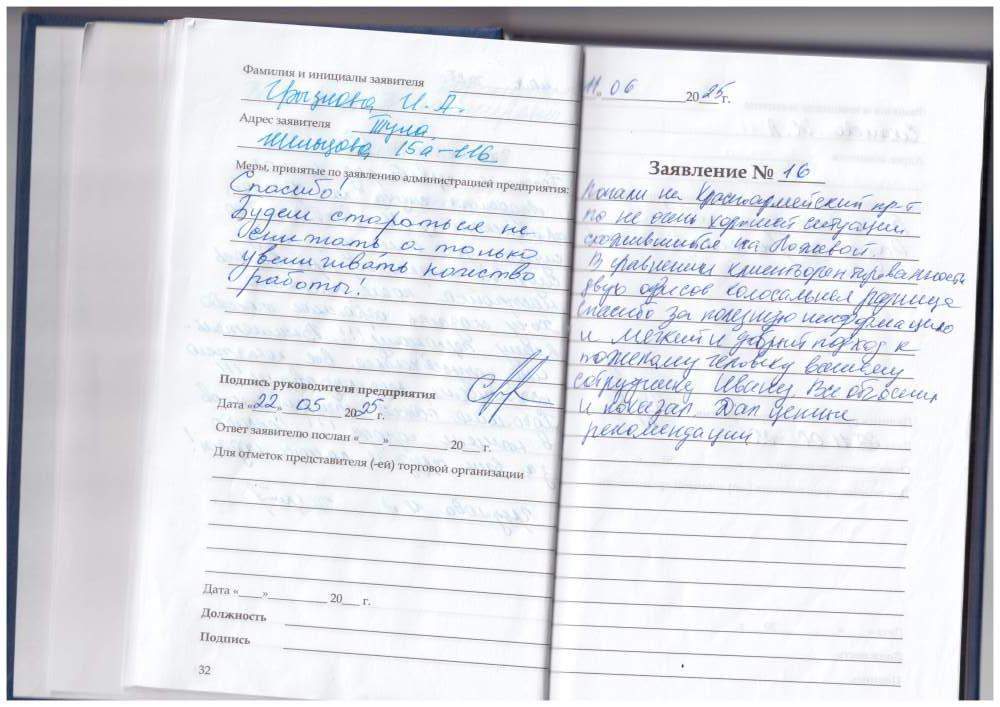 Фамилия и инициалы заявителя
Грызлова И. А.
Адрес заявителя Тула,
Жильцова 15а-116
Меры, принятые по заявлению администрацией предприятия:
Спасибо!
Будем стораться не
снижать а только
увеличивать качество
работы!
Подпись руководителя предприятия
Дата «22» 05 2025г.
Ответ заявителю послан «___» 20___ г.
Для отметок представителя (-ей) торговой организации
Дата «___» 20___ г.
Должность
Подпись
32
11.06 2025г.
Заявление № 16
Попали на Красноармейский пр-т
по не очень хорошей ситуации
сложившийся на Ложевой.
В сравнении клиентоориентированность
двух офисов колосальная разница
Спасибо за полезную информацию
и мягкий и добрый подход к
пожелому человеку вашему
сотруднику Ивану. Все объяснил
и показал. Дал ценные
рекомендации